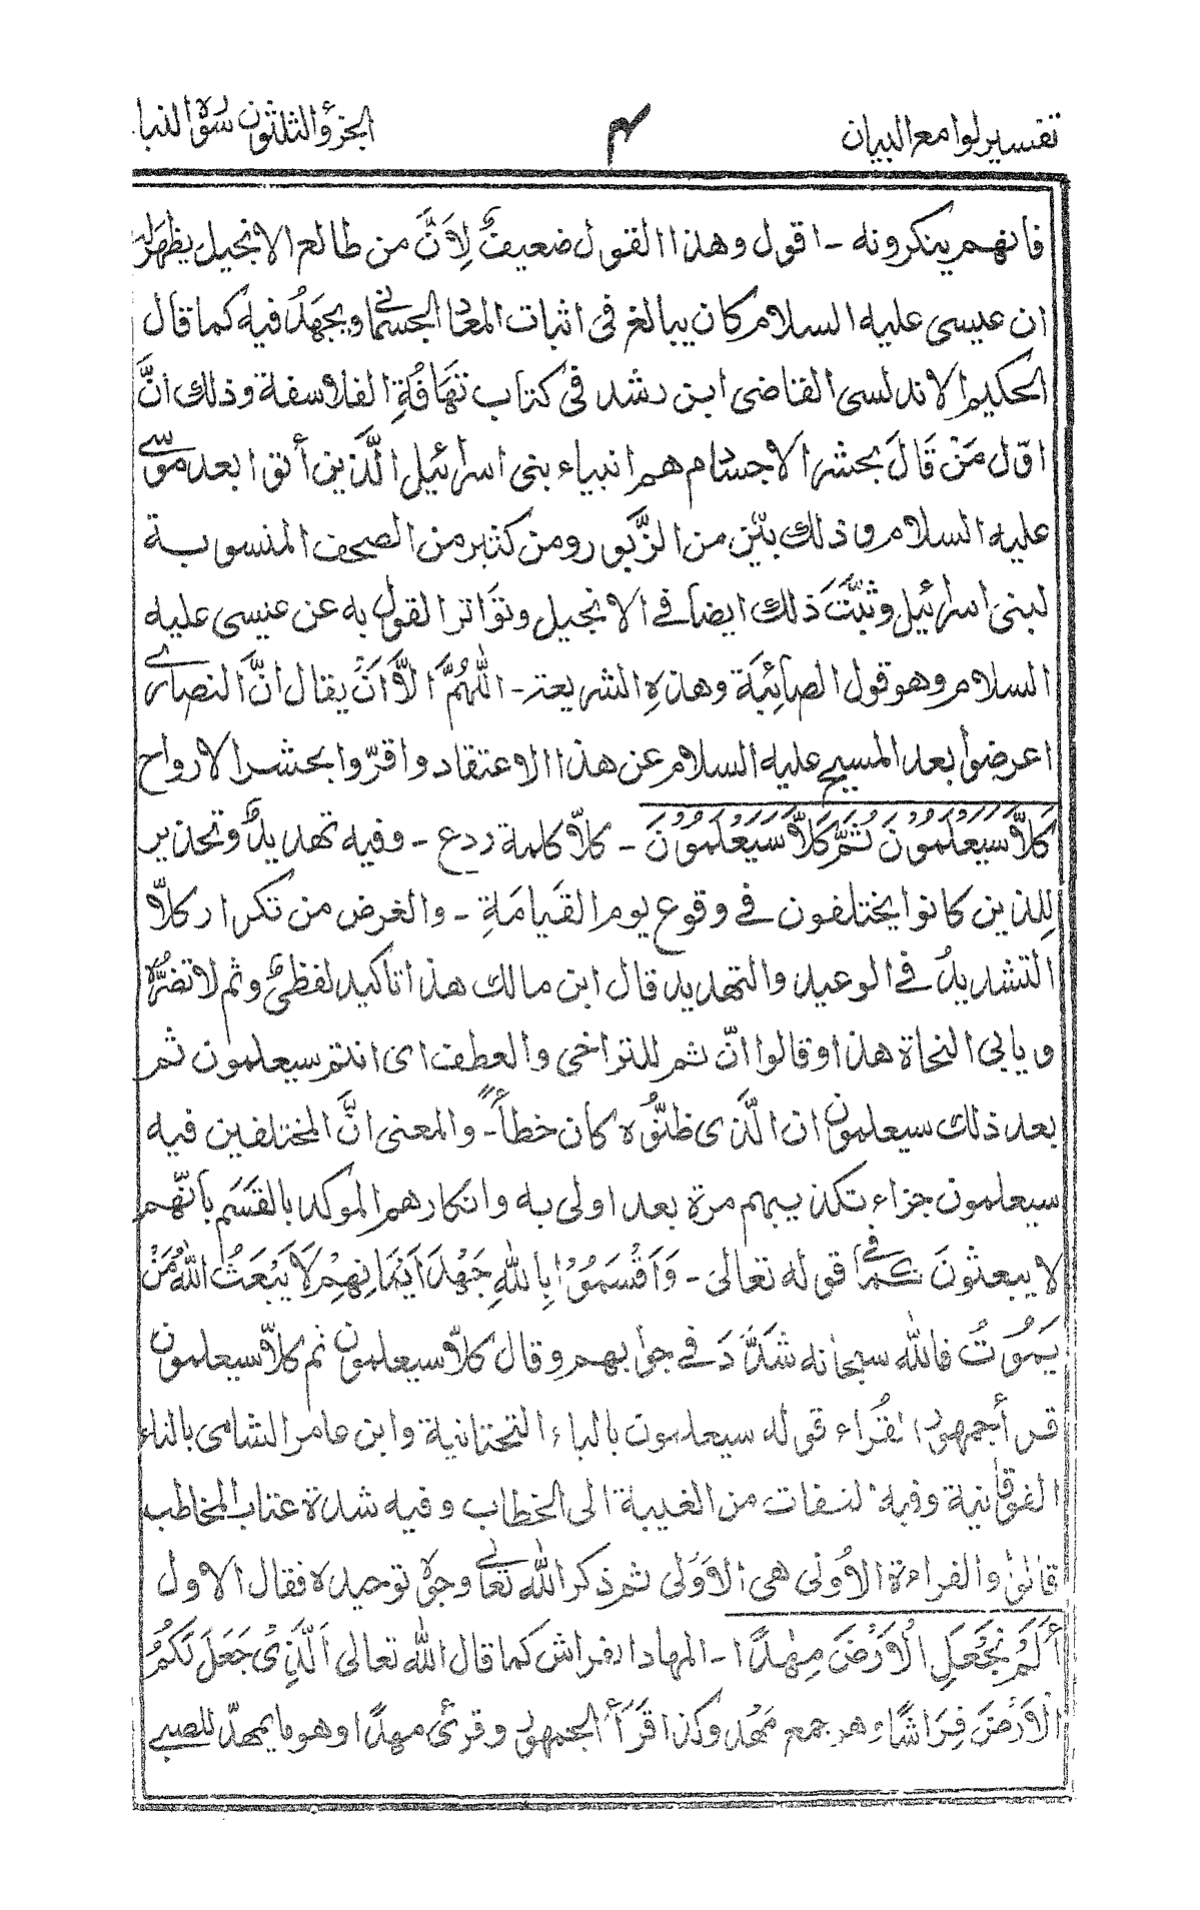 تفسير لوامع البيان ٤ الجزؤ الثلثون سورة النبا
فانهم ينكرونه - اقول وهذا القول ضعيفٌ لِاَنَّ من طالع الانجيل يظهر له
ان عيسى عليه السلام كان يبالغ فى اثبات المعاد الجسمانى ويجهدُ فيه كما قال
الحكيم الاندلسى القاضى ابن رشد فى كتاب تَهَافُةِ الفلاسفة وذلك انَّ
اوّل مَنْ قَالَ بحشر الاجسام هم انبياء بنى اسرائيل الَّذين أتوا بعد موسى
عليه السلام وذلك بيّن من الزَّبور ومن كثير من الصحف المنسوبة
لبنى اسرائيل وثبتَ ذلك ايضا فى الانجيل وتَوَاتر القول به عن عيسى عليه
السلام وهو قول الصابَئِية وهذهِ الشريعة - اللهُمَّ الاَّ اَنْ يقال انَّ النصارى
اعرضوا بعد المسيح عليه السلام عن هذا الاعتقاد واقرّوا بحشر الارواح
كَلاَّ سَيَعْلَمُوْنَ ثُمَّ كَلاَّ سَيَعْلَمُوْنَ - كلاّ كلمة ردع - وفيه تهديدٌ وتحذير
لِلذين كانوا يختلفون فى وقوع يوم القيامَةِ - والغرض من تكرار كلاّ
التشديدُ فى الوعيد والتهديد قال ابن مالك هذا تاكيد لفظىٌ وثم لا تضرُّه
ويابى النحاة هذا وقالوا انّ ثم للتراخى والعطف اى انتم سيعلمون ثم
بعد ذلك سيعلمون ان الَّذى ظنُّوه كان خطأً - والمعنى انَّ المختلفين فيه
سيعلمون جزاء تكذيبهم مرة بعد اولى به وانكارهم الموكد بالقَسَم بأنّهم
لا يبعثونَ كما فى قوله تعالىٰ - وَاَقْسَمُوْا بِاللهِ جَهْدَ اَيْمَانِهِمْ لَا يَبْعَثُ اللهُ مَنْ
يَمُوْتُ فالله سبحانه شَدَّدَ فى جوابهم وقال كلاّ سيعلمون ثم كلاّ سيعلمون
قرأ جمهور القُرّاء قوله سيعلمون بالياء التحتانية وابن عامر الشامى بالتاء
الفوقانية وفيه التفات من الغيبة الى الخطاب وفيه شدة عتاب المخاطب
والقراءة الاُوْلى هى الاَوْلى ثم ذكر الله تعالى وجوه توحيده فقال الاول
أَلَمْ نَجْعَلِ الْاَرْضَ مِهٰدًا - المهاد الفراش كما قال الله تعالى اَلَّذِىْ جَعَلَ لَكُمُ
الْاَرْضَ فِرَاشًا وهو جمع مَهْد وكذا قَرَأ الجمهور وقرئ مهدًا وهو ما يمهدّ للصبى